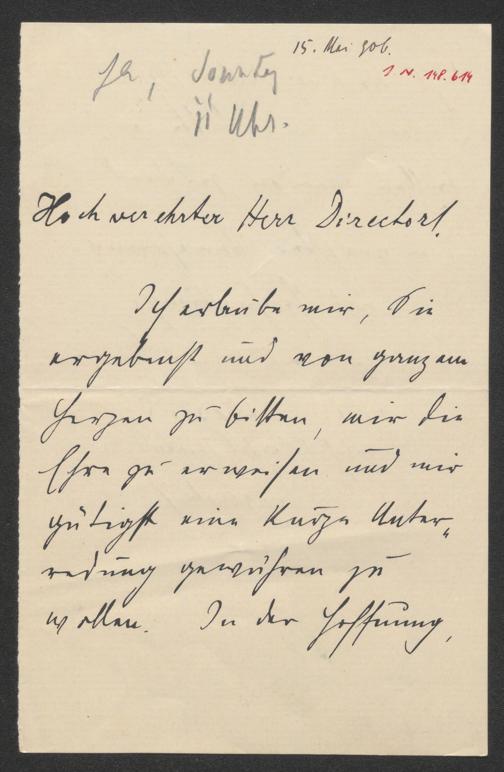 15. Mai 906.
I. N. 148.614
Ja, Sonntag
11 Uhr.
Hochverehrter Herr Director!
Ich erlaube mir, Sie
ergebenst und von ganzem
Herzen zu bitten, mir die
Ehre zu erweisen und mir
gütigst eine kurze Unter„
redung gewähren zu
wollen. In der Hoffnung,